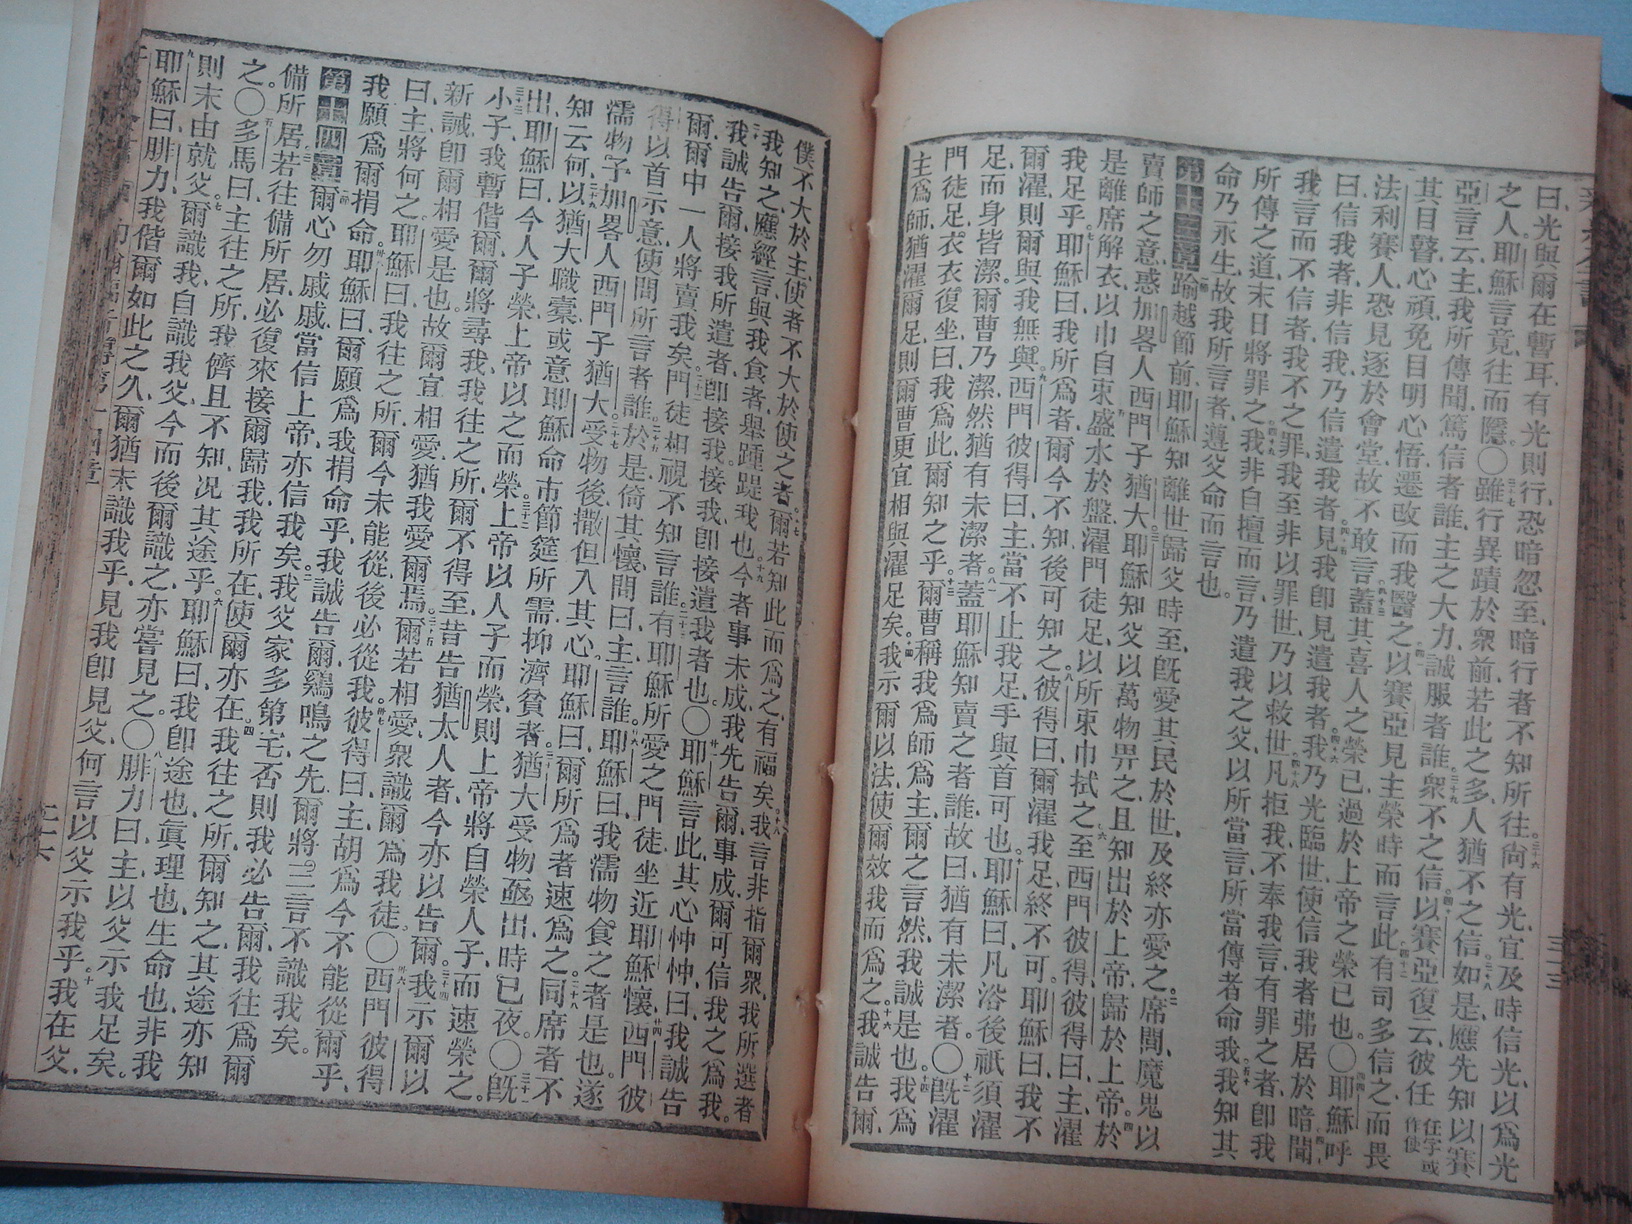 曰、光與爾在暫耳、有光則行、恐暗忽至、暗行者不知所往、尙有光、宜及時信光、以爲光
之人、耶穌言竟、往而隱。○雖行異蹟於衆前、若此之多、人猶不之信、如是、應先知以賽
亞言云、主、我所傳聞、篤信者誰、主之大力、誠服者誰、衆不之信、以賽亞復云、彼任 任字或作使
其目瞽心頑、免目明心悟、遷改而我醫之、以賽亞見主榮時而言此、有司多信之、而畏
法利賽人、恐見逐於會堂、故不敢言、蓋其喜人之榮己、過於上帝之榮己也。○耶穌呼
曰、信我者、非信我、乃信遣我者、見我卽見遣我者、我乃光臨世、使信我者弗居於暗、聞
我言而不信者、我不之罪、我至非以罪世、乃以救世、凡拒我、不奉我言、有罪之者、卽我
所傳之道、末日將罪之、我非自擅而言、乃遣我之父、以所當言、所當傳者命我、我知其
命乃永生、故我所言者、遵父命而言也。
第十三章 踰越節前、耶穌知離世歸父時至、旣愛其民於世、及終亦愛之。席間、魔鬼以
賣師之意、惑加畧人西門子猶大、耶穌知父以萬物畀之、且知出於上帝、歸於上帝。於
是離席解衣、以巾自束、盛水於盤、濯門徒足、以所束巾拭之、至西門彼得、彼得曰、主、濯
我足乎。耶穌曰、我所爲者、爾今不知、後可知之、彼得曰、爾濯我足、終不可。耶穌曰、我不
爾濯、則爾與我無與。西門彼得曰、主當不止我足、手與首可也。耶穌曰、凡浴後、祇須濯
足、而身皆潔。爾曹乃潔、然猶有未潔者、蓋耶穌知賣之者誰、故曰、猶有未潔者。○旣濯
門徒足、衣衣復坐、曰、我爲此、爾知之乎。爾曹稱我爲師、爲主、爾之言然、我誠是也、我爲
主爲師、猶濯爾足、則爾曹更宜相與濯足矣、我示爾以法、使爾效我而爲之、我誠告爾、
僕不大於主、使者不大於使之者。爾若知此而爲之、有福矣。我言非指爾衆、我所選者
我知之、應經言、與我食者、舉踵踶我也。今者事未成、我先告爾、事成、爾可信我之爲我。
我誠告爾、接我所遣者、卽接我、接我、卽接遣我者也。○耶穌言此、其心忡忡、曰、我誠告
爾、爾中一人將賣我矣。門徒相視、不知言誰、有耶穌所愛之門徒、坐近耶穌懷、西門彼
得以首示意、使問所言者誰、於是倚其懷間曰、主言誰、耶穌曰、我濡物食之者是也、遂
濡物、予加畧人西門子猶大。受物後、撒但入其心、耶穌曰、爾所爲者、速爲之。同席者不
知云何、以猶大職橐、或意耶穌命市節筵所需、抑濟貧者、猶大受物、亟出、時已夜。○旣
出、耶穌曰、今人子榮、上帝以之而榮、上帝以人子而榮、則上帝將自榮人子、而速榮之。
小子、我暫偕爾、爾將尋我、我往之所、爾不得至、昔告猶太人者、今亦以告爾。我示爾以
新誡、卽爾相愛是也。故爾宜相愛、猶我愛爾焉。爾若相愛、衆識爾爲我徒。○西門彼得
曰、主將何之、耶穌曰、我往之所、爾今未能從、後必從我。彼得曰、主胡爲今不能從爾乎、
我願爲爾捐命、耶穌曰、爾願爲我捐命乎、我誠告爾、鷄鳴之先、爾將三言不識我矣。
第十四章 爾心勿戚戚、當信上帝、亦信我矣。我父家多第宅、否則我必告爾、我往爲爾
備所居、若往備所居、必復來接爾歸我、我所在、使爾亦在。我往之所、爾知之、其途亦知
之。○多馬曰、主往之所、我儕且不知、况其途乎。耶穌曰、我卽途也、眞理也、生命也、非我
則末由就父。爾識我、自識我父、今而後、爾識之、亦嘗見之。○腓力曰、主以父示我足矣。
耶穌曰、腓力、我偕爾如此之久、爾猶未識我乎、見我卽見父、何言以父示我乎。我在父、